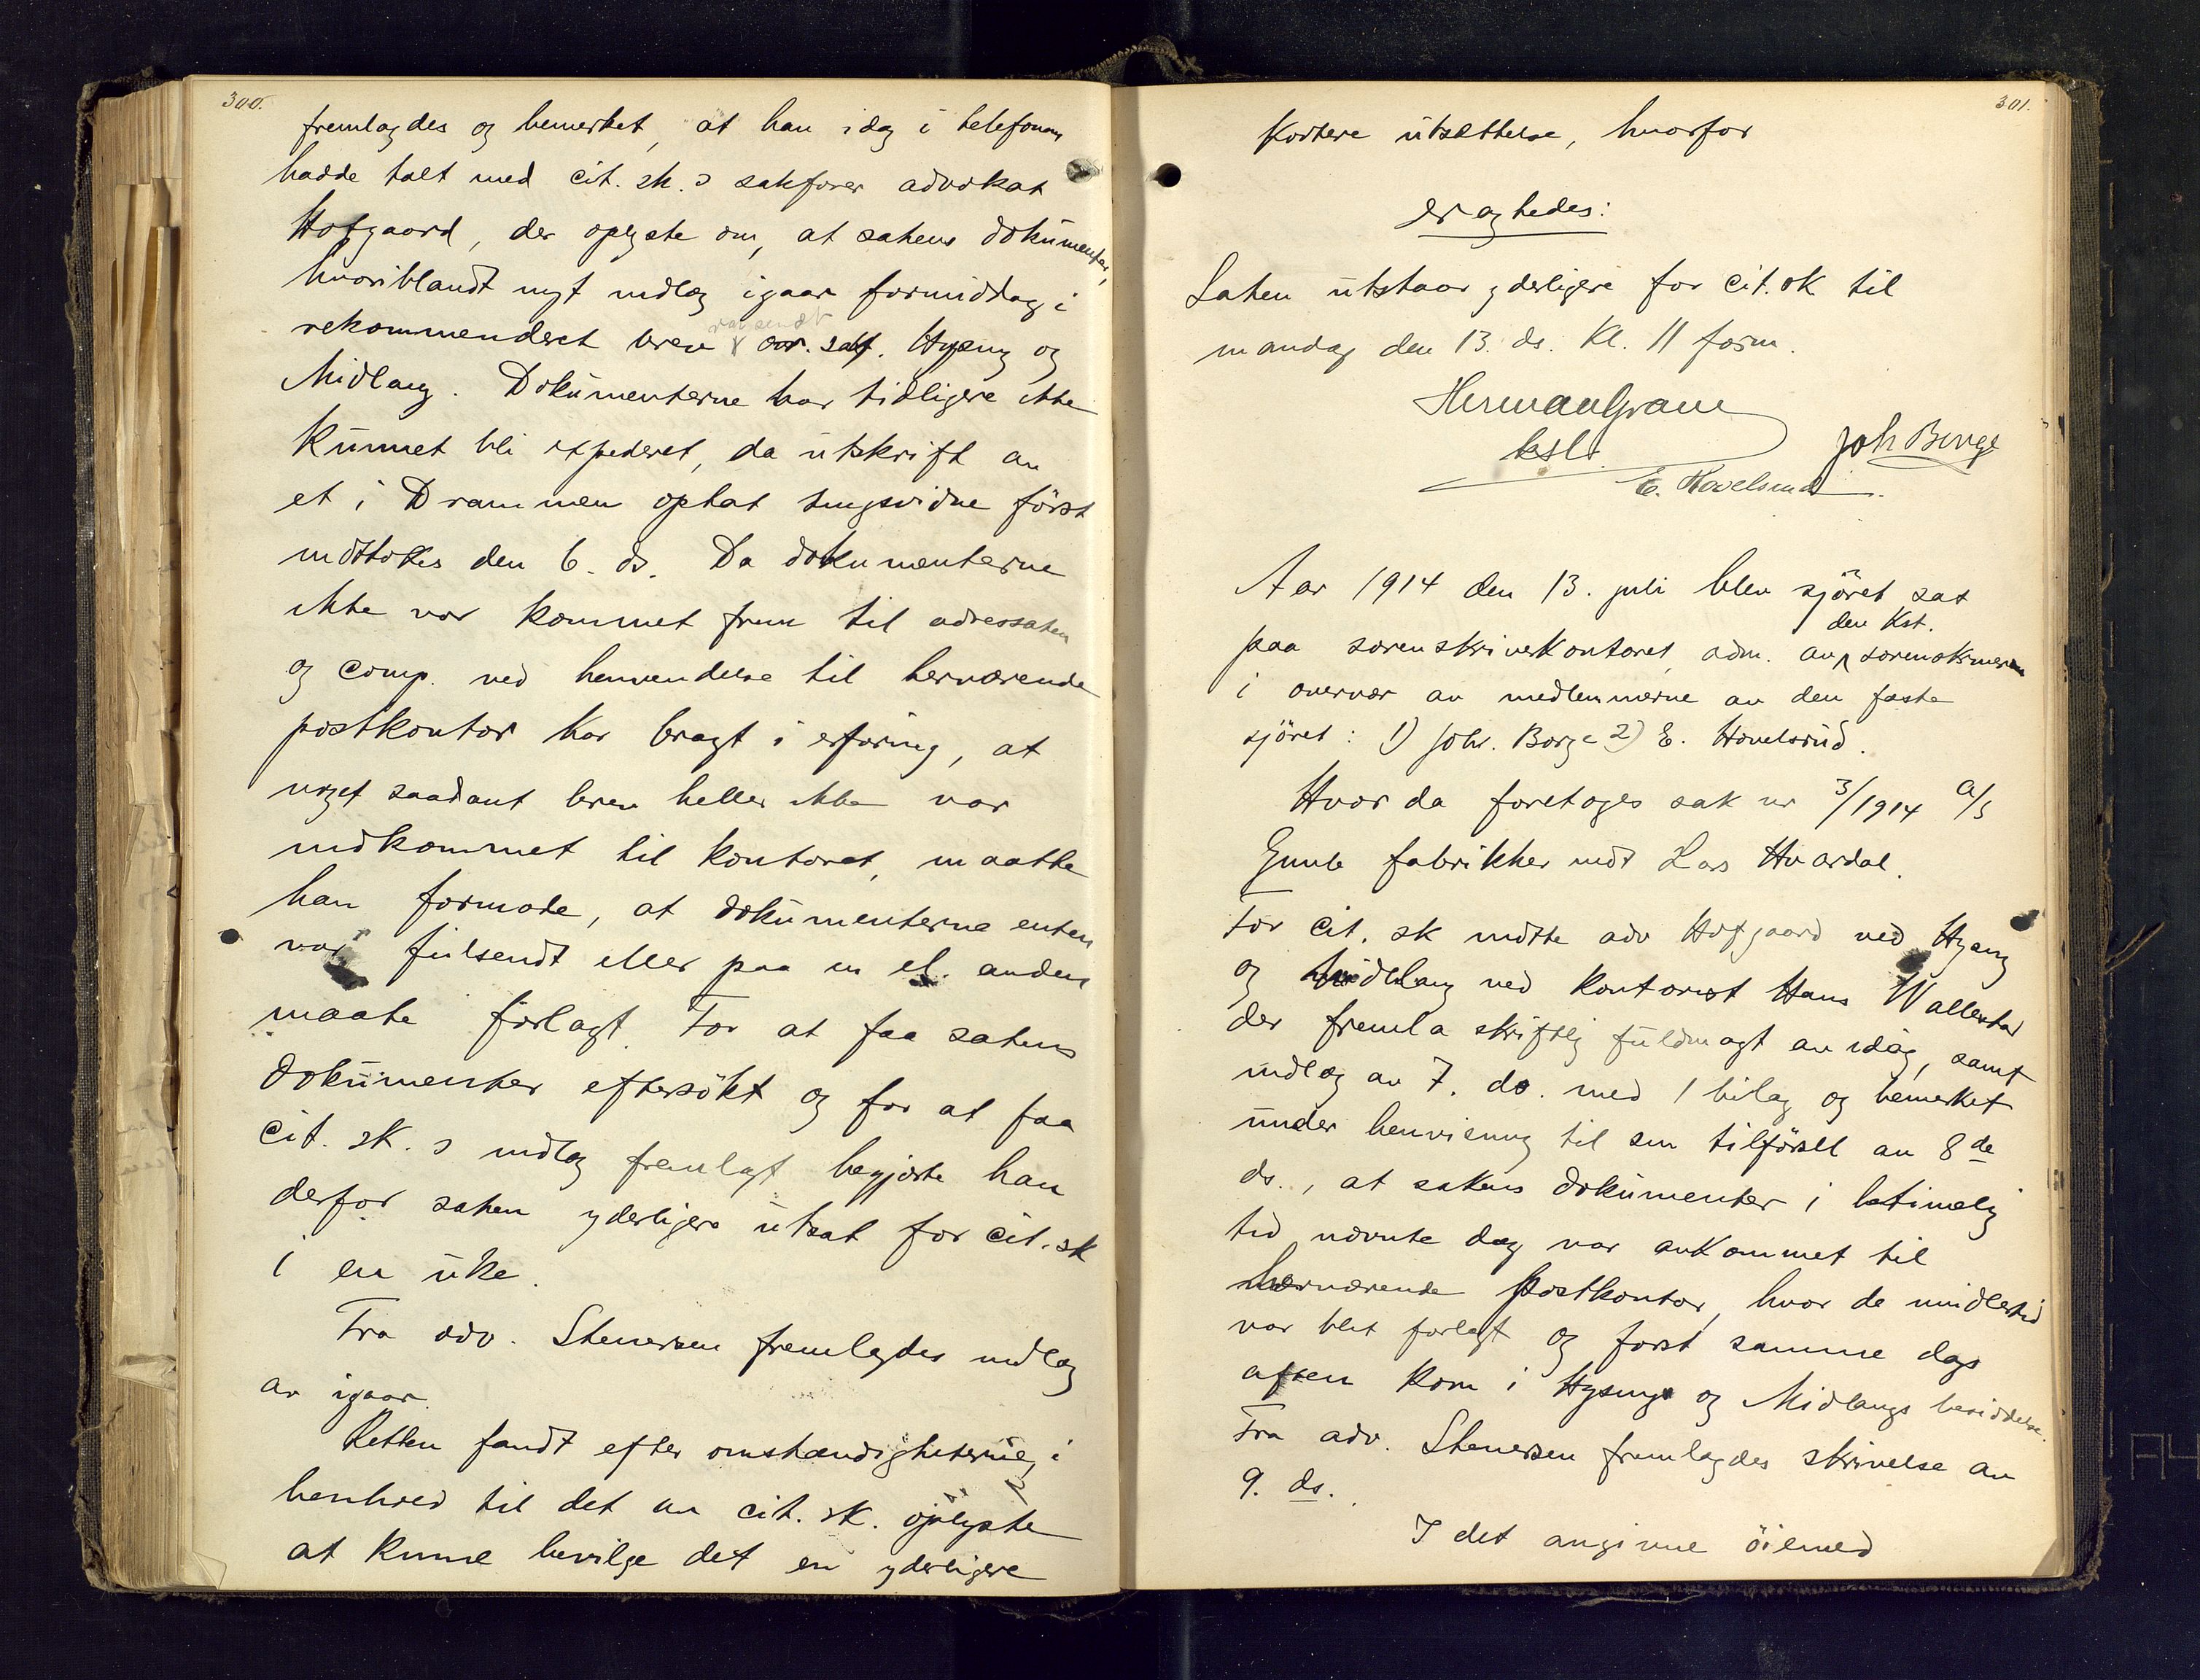 300.
fremlagdes og bemerket, at han idag i telefonen
hadde talt med cit. sk.s sakfører advokat
Hofgaard, der oplyste om, at sakens dokumenter,
hvoriblandt nyt indlæg igaar formiddag i
rekommenderet brev var sendt ovr. sakf. Hysing og
Midlang. Dokumenterne har tidligere ikke
kunnet bli expederet, da utskrift av
et i Drammen optat tingsvidne först
indtokes den 6. ds. Da dokumenterne
ikke var kommet frem til adressaten
og comp. ved henvendelse til herværende
postkontor har bragt i erfaring, at
noget saadant brev heller ikke var
indkommet til kontoret, maatte
han formode, at dokumenterne enten
var feilsendt eller paa en el. anden
maate forlagt. For at faa sakens
dokumenter eftersökt og for at faa
cit. sk.s indlæg fremlagt begjærte han
derfor saken yderligere utsat for cit. sk
i en uke.
Fra adv. Stenersen fremlagdes indlæg
av igaar.
Retten fandt efter omstændigheterne, i
henhold til det av cit. sk. oplyste
at kunne bevilge det en yderligere
301.
kortere utsættelse, hvorfor
eragtedes:
Saken utstaar yderligere for cit. sk til
mandag den 13. ds. kl. 11 form.
Herman Gram
kst.
Joh Borge
E. Hovelsrud
Aar 1914 den 13. juli blev sjöret sat
paa sorenskriverkontoret, adm. av den kst. sorenskriveren
i overvær av medlemmerne av den faste
sjöret: 1) Joh. Borge 2) E. Hovelsrud.
Hvor da foretoges sak nr 3/1914 A/S
Gunle fabrikker mot Lars Hvardal.
For cit. sk mötte adv Hofgaard ved Hysing
og Midlang ved kontorist Hans Wallestad
der fremla skriftlig fuldmagt av idag, samt
indlæg av 7. ds. med 1 bilag og bemerket
under henvisning til sin tilförsel av 8de
ds., at sakens dokumenter i betimelig
tid nævnte dag var ankommet til
herværende postkontor, hvor de imidlertid
var blit forlagt og först samme dags
aften kom i Hysings og Midlangs besiddelse.
Fra adv. Stenersen fremlagdes skrivelse av
9. ds.
I det angivne öiemed